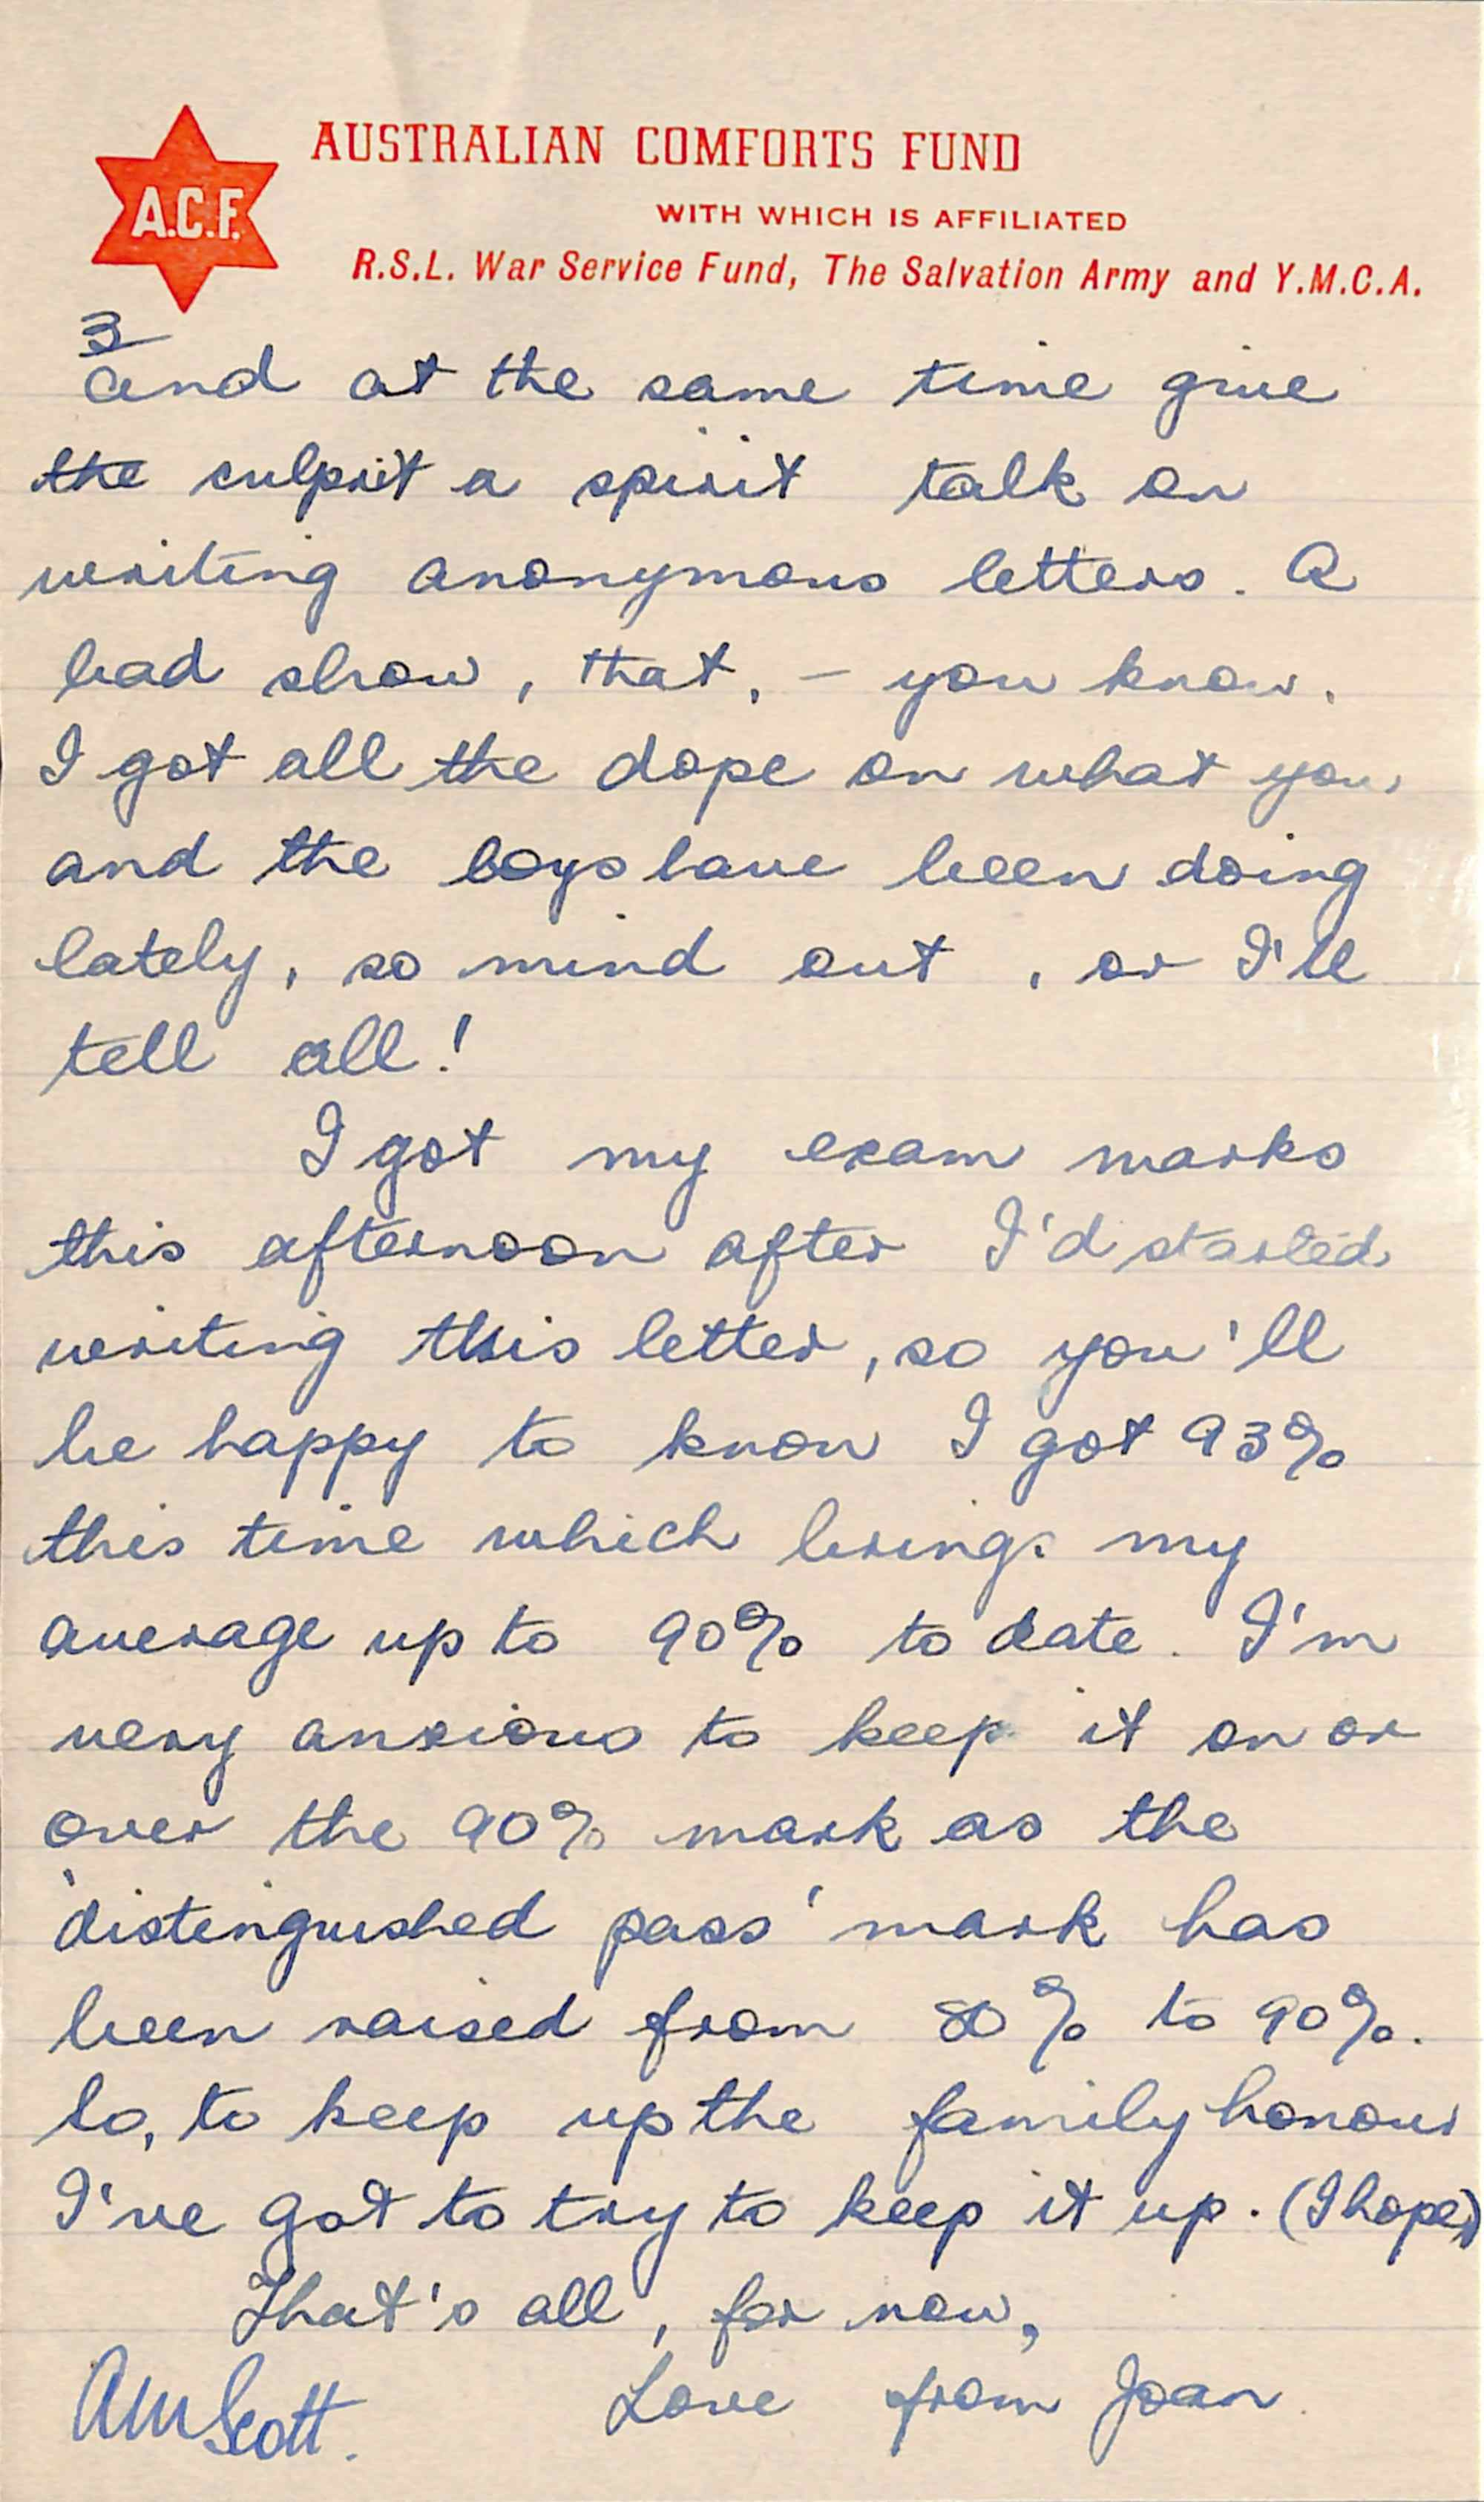 A.C.F.
AUSTRALIAN COMFORTS FUND
WITH WHICH IS AFFILIATED
R.S.L. War Service Fund, The Salvation Army and Y.M.C.A.
3
and at the same time give
the culprit a spirit talk on
writing anonymous letters. A
bad show, that, – you know.
I got all the dope on what you,
and the boys have been doing
lately, so mind out, or I'll
tell all!
I got my exam marks
this afternoon after I'd started
writing this letter, so you'll
be happy to know I got 93%
this time which brings my
average up to 90% to date. I'm
very anxious to keep it on or
over the 90% mark as the
'distinguished pass' mark has
been raised from 80% to 90%.
So, to keep up the family honour
I've got to try to keep it up. (I hope)
That's all, for now,
Love from Joan.
AMScott.